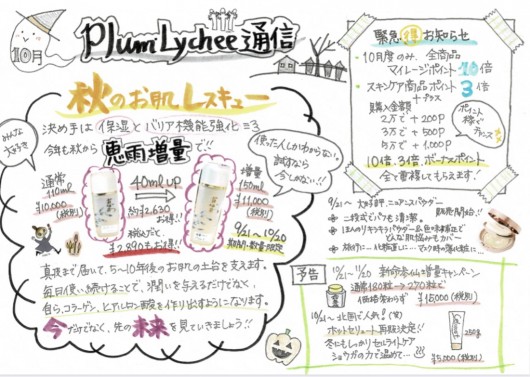 10月
Plum Lychee 通信
秋のお肌レスキュー
みんな
大好き
決め手は保湿とバリア機能強化
今年も秋から恵雨増量で!!
使った人しかわからない。
試すなら
今しかない!!
通常
110ml
¥10,000
(税別)
40ml UP
約¥2,630
お得!!
税込だと
¥2,890もお得!!
増量
150ml
¥11,000
(税別)
9/21〜10/20
期間・数量限定
真皮まで届いて、5〜10年後のお肌の土台を支えます。
毎日使い続けることで、潤いを与えるだけでなく、
自ら、コラーゲン、ヒアルロン酸を作り出すようになります。
今だけでなく、先の未来を見ていきましょう!!
緊急得お知らせ
・10月度のみ、全商品
マイレージポイント10倍
・スキンケア商品ポイント3倍
+プラス
購入金額
2万で+200P
3万で+500P
5万で+1,000P
ポイント
稼ぐ
チャンス
10倍、3倍、ボーナスポイント
全て重複してもらえます!
9/21〜 大好評、ニュアンスパウダー
発売開始!!
二段式でパフも清潔。
ほんのりキラキラパウダー&色味補正で
どんな肌悩みもカバー
予告
10/21〜11/20
増量キャンペーン
通常180粒→270粒で
価格変わらず
¥15,000(税別)
10/21〜 北国で人気!
ホットセリュート再販決定!!
冬にもしっかりセルライトケア
ショウガの力で温めて…
250g
¥5,000(税別)